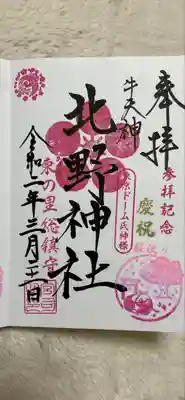 奉拝
参拝記念
慶祝
牛天神
東京ドーム氏神様
北野神社
東の里総鎮守
令和二年三月二十一日